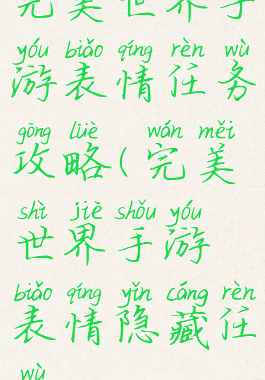 完美世界手
yóu biǎo qíng rèn wù
游表情任务
gōng lüè wán měi
攻略(完美
shì jiè shǒu yóu
世界手游
biǎo qíng yǐn cáng rèn
表情隐藏任
wù